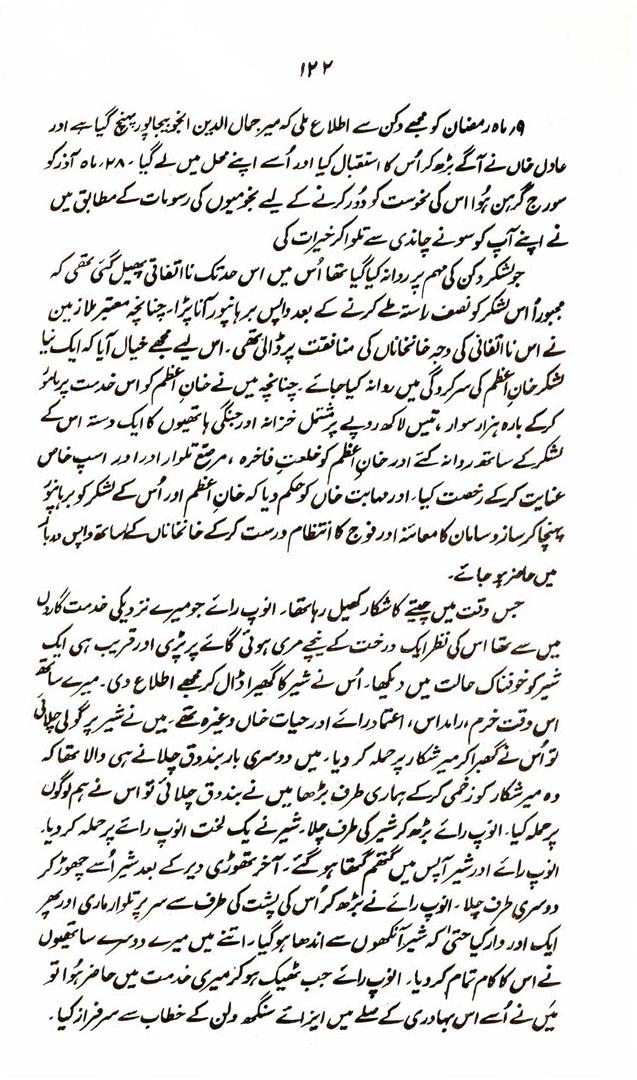 ۱۲۲
۹؍ ماہ رمضان کو مجھے دکن سے اطلاع ملی کہ میر جمال الدین انجو بیجاپور پہنچ گیا ہے اور
عادل خاں نے آگے بڑھ کر اُس کا استقبال کیا اور اُسے اپنے محل میں لے گیا ۔ ۲۸؍ ماہ آذر کو
سورج گرہن ہُوا اس کی نحوست کو دُور کرنے کے لیے نجومیوں کی رسومات کے مطابق میں
نے اپنے آپ کو سونے چاندی سے تلوا کر خیرات کی
جو لشکر دکن کی مہم پر روانہ کیا گیا تھا اُس میں اس حد تک نااتفاقی پھیل گئی تھی کہ
مجبوراً اس لشکر کو نصف راستہ طے کرنے کے بعد واپس برہانپور آنا پڑا۔ چنانچہ معتبر ملازمین
نے اس نااتفاقی کی وجہ خانخاناں کی منافقت پر ڈالی تھی۔ اس لیے مجھے خیال آیا کہ ایک نیا
لشکر خانِ اعظم کی سرکردگی میں روانہ کیا جائے ۔ چنانچہ میں نے خانِ اعظم کو اس خدمت پر مامور
کرکے بارہ ہزار سوار ، تیس لاکھ روپے پر مشتمل خزانہ اور جنگی ہاتھیوں کا ایک دستہ اس کے
لشکر کے ساتھ روانہ کئے اور خانِ اعظم کو خلعتِ فاخرہ ، مرصّع تلوار اور اور اسپ خاص
عنایت کرکے رخصت کیا۔ اور مہابت خاں کو حکم دیا کہ خانِ اعظم اور اُس کے لشکر کو برہانپور
پہنچا کر ساز و سامان کا معائنہ اور فوج کا انتظام درست کرکے خانخاناں کے ساتھ واپس دربار
میں حاضر ہو جائے۔
جس وقت میں چیتے کا شکار کھیل رہا تھا۔ انوپ رائے جو میرے نزدیکی خدمت گاروں
میں سے تھا اس کی نظر ایک درخت کے نیچے مری ہوئی گائے پر پڑی اور قریب ہی ایک
شیر کو خوفناک حالت میں دیکھا۔ اُس نے شیر کا گھیرا ڈال کر مجھے اطلاع دی۔ میرے ساتھ
اس وقت خرم ، رامداس ، اعتماد رائے اور حیات خاں وغیرہ تھے۔ میں نے شیر پر گولی چلائی
تو اُس نے گھبرا کر میر شکار پر حملہ کر دیا۔ میں دوسری بار بندوق چلانے ہی والا تھا کہ
وہ میر شکار کو زخمی کرکے ہماری طرف بڑھا میں نے بندوق چلائی تو اس نے ہم لوگوں
پر حملہ کیا۔ انوپ رائے بڑھ کر شیر کی طرف چلا۔ شیر نے یک لخت انوپ رائے پر حملہ کر دیا۔
انوپ رائے اور شیر آپس میں گتھم گتھا ہو گئے۔ آخر تھوڑی دیر کے بعد شیر اُسے چھوڑ کر
دوسری طرف چلا ۔ انوپ رائے نے بڑھ کر اُس کی پشت کی طرف سے سر پر تلوار ماری اور پھر
ایک اور وار کیا حتیٰ کہ شیر آنکھوں سے اندھا ہو گیا۔ اتنے میں میرے دوسرے ساتھیوں
نے اس کا کام تمام کر دیا۔ انوپ رائے جب ٹھیک ہو کر میری خدمت میں حاضر ہُوا تو
میں نے اُسے اس بہادری کے صلے میں ایزائے سنگھ ولن کے خطاب سے سرفراز کیا۔